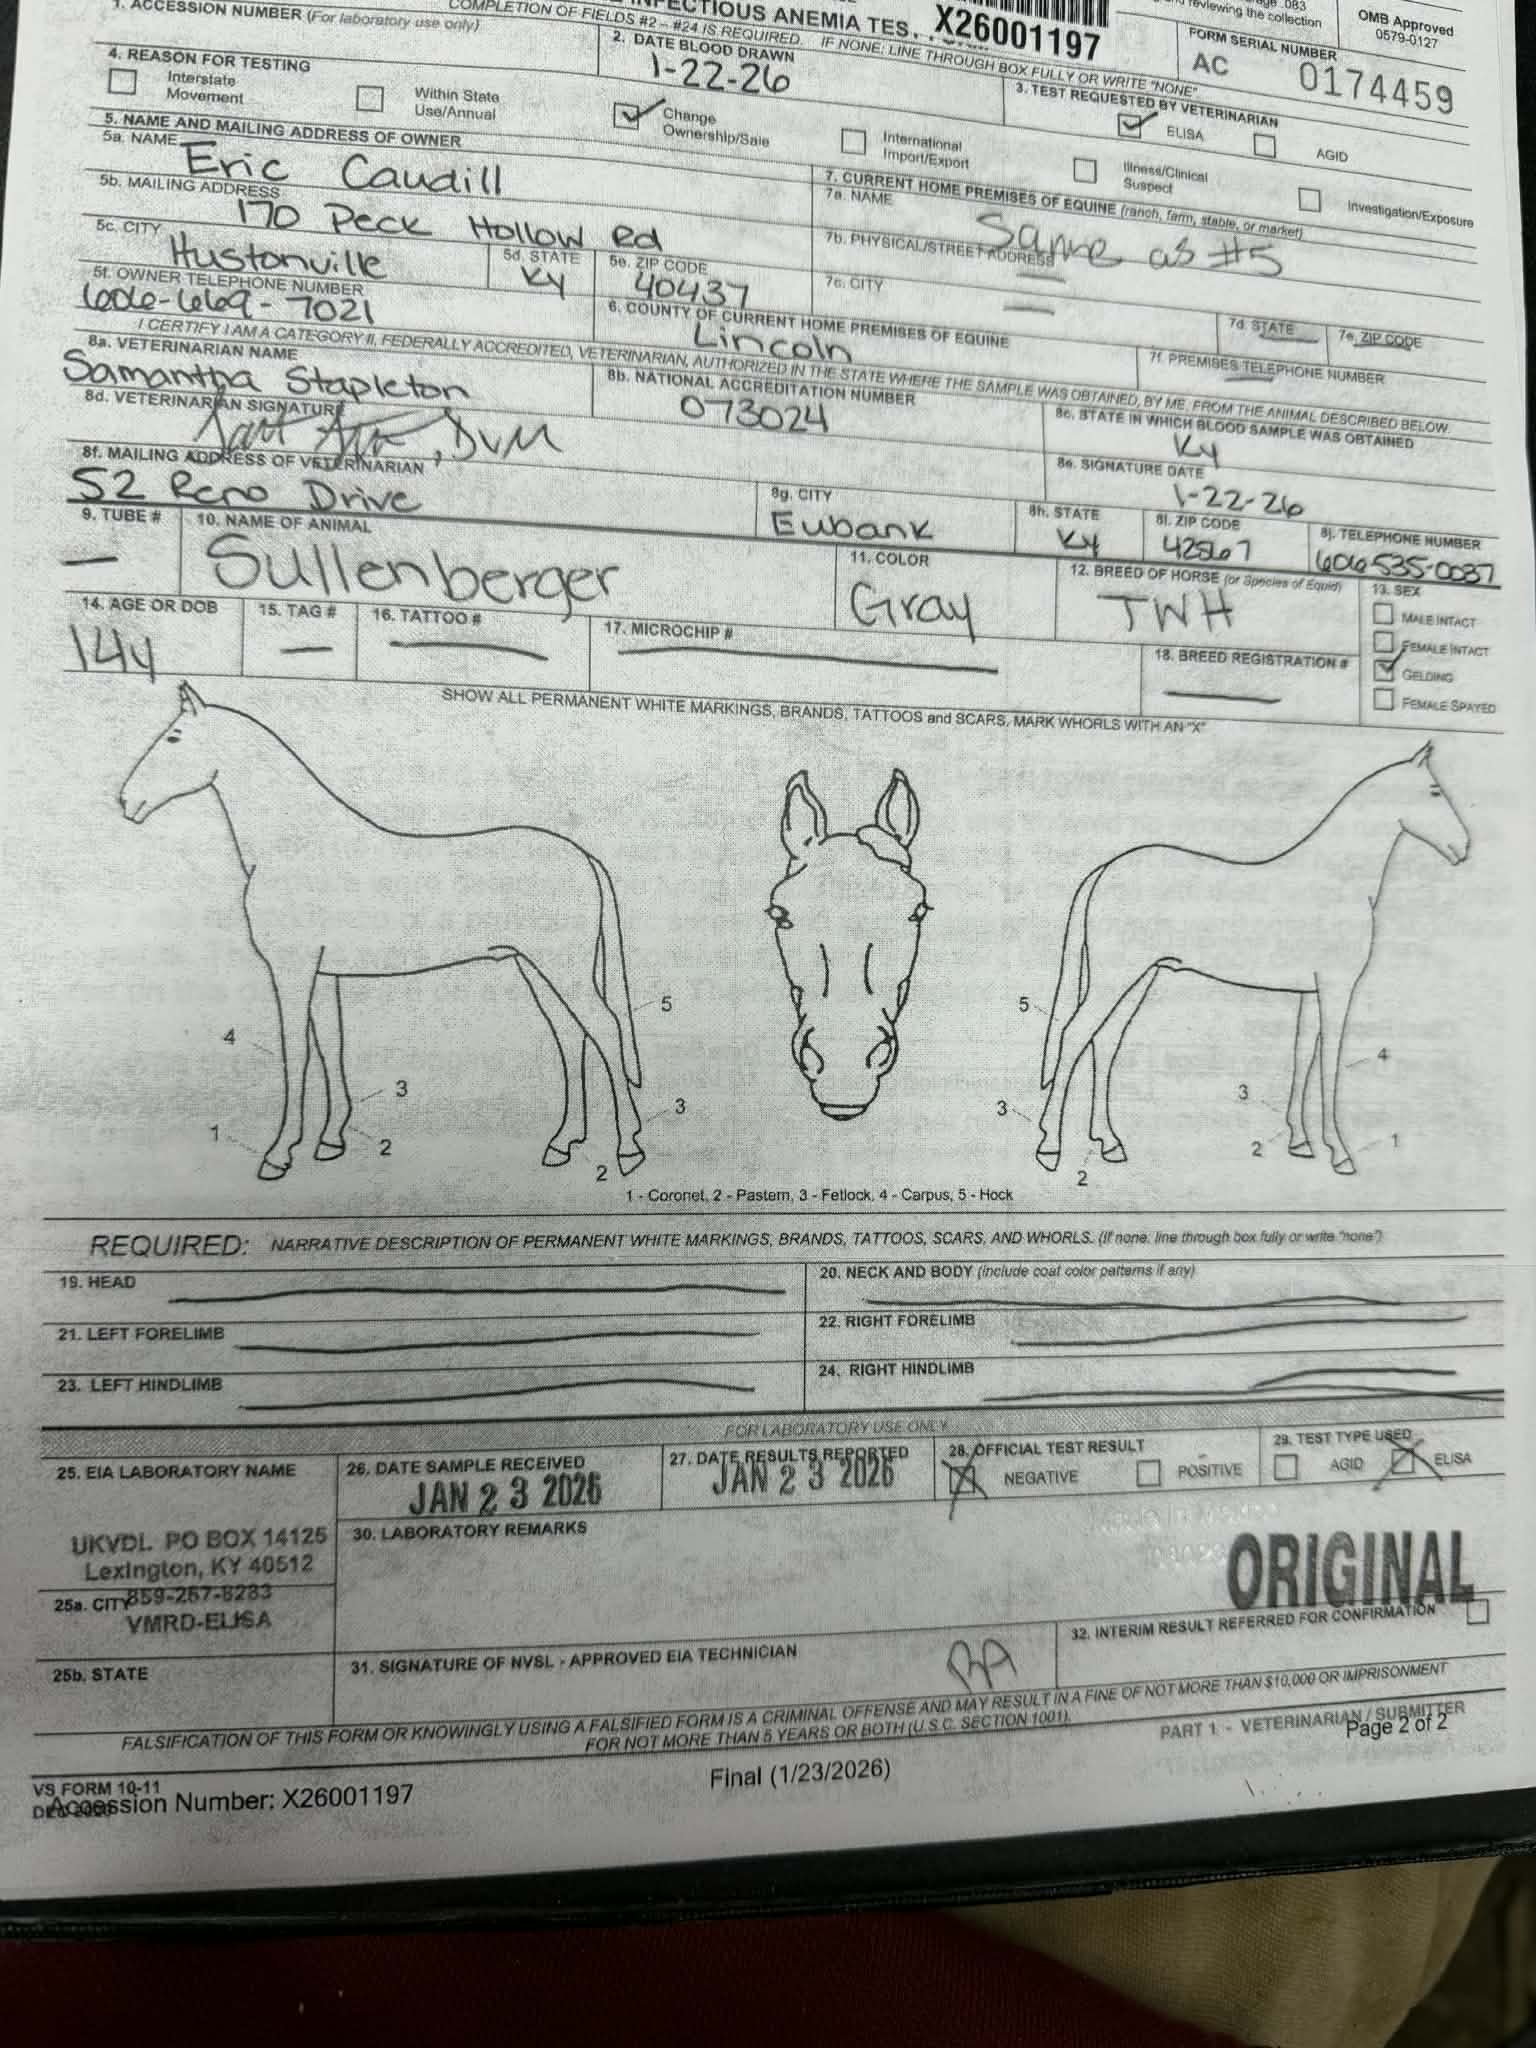 INFECTIOUS ANEMIA TES
X26001197
.083
reviewing the collection
OMB Approved
0579-0127
1. ACCESSION NUMBER (For laboratory use only)
COMPLETION OF FIELDS #2 – #24 IS REQUIRED. IF NONE: LINE THROUGH BOX FULLY OR WRITE "NONE"
FORM SERIAL NUMBER
AC 0174459
2. DATE BLOOD DRAWN
1-22-26
3. TEST REQUESTED BY VETERINARIAN
ELISA
AGID
4. REASON FOR TESTING
Interstate Movement
Within State Use/Annual
Change Ownership/Sale
International Import/Export
Illness/Clinical Suspect
Investigation/Exposure
5. NAME AND MAILING ADDRESS OF OWNER
5a. NAME
Eric Caudill
5b. MAILING ADDRESS
170 Peck Hollow Rd
5c. CITY
Hustonville
5d. STATE
Ky
5e. ZIP CODE
40437
5f. OWNER TELEPHONE NUMBER
606-669-7021
6. COUNTY OF CURRENT HOME PREMISES OF EQUINE
Lincoln
7. CURRENT HOME PREMISES OF EQUINE (ranch, farm, stable, or market)
7a. NAME
Same as #5
7b. PHYSICAL/STREET ADDRESS
7c. CITY
7d. STATE
7e. ZIP CODE
7f. PREMISES TELEPHONE NUMBER
I CERTIFY I AM A CATEGORY II, FEDERALLY ACCREDITED, VETERINARIAN, AUTHORIZED IN THE STATE WHERE THE SAMPLE WAS OBTAINED, BY ME, FROM THE ANIMAL DESCRIBED BELOW.
8a. VETERINARIAN NAME
Samantha Stapleton
8b. NATIONAL ACCREDITATION NUMBER
073024
8c. STATE IN WHICH BLOOD SAMPLE WAS OBTAINED
Ky
8d. VETERINARIAN SIGNATURE
, DVM
8e. SIGNATURE DATE
1-22-26
8f. MAILING ADDRESS OF VETERINARIAN
52 Reno Drive
8g. CITY
Eubank
8h. STATE
Ky
8i. ZIP CODE
42567
8j. TELEPHONE NUMBER
606 535-0037
9. TUBE #
—
10. NAME OF ANIMAL
Sullenberger
11. COLOR
Gray
12. BREED OF HORSE (or Species of Equid)
TWH
13. SEX
MALE INTACT
FEMALE INTACT
GELDING
FEMALE SPAYED
14. AGE OR DOB
14y
15. TAG #
—
16. TATTOO #
17. MICROCHIP #
18. BREED REGISTRATION #
SHOW ALL PERMANENT WHITE MARKINGS, BRANDS, TATTOOS and SCARS, MARK WHORLS WITH AN "X"
5 5
4 4
3 3 3 3
1 2 2 2 2 1
1 - Coronet, 2 - Pastern, 3 - Fetlock, 4 - Carpus, 5 - Hock
REQUIRED: NARRATIVE DESCRIPTION OF PERMANENT WHITE MARKINGS, BRANDS, TATTOOS, SCARS, AND WHORLS. (If none: line through box fully or write "none")
19. HEAD
20. NECK AND BODY (include coat color patterns if any)
21. LEFT FORELIMB
22. RIGHT FORELIMB
23. LEFT HINDLIMB
24. RIGHT HINDLIMB
FOR LABORATORY USE ONLY
25. EIA LABORATORY NAME
UKVDL PO BOX 14125
Lexington, KY 40512
25a. CITY 859-257-8283
VMRD-ELISA
25b. STATE
26. DATE SAMPLE RECEIVED
JAN 23 2026
27. DATE RESULTS REPORTED
JAN 23 2026
28. OFFICIAL TEST RESULT
NEGATIVE
POSITIVE
29. TEST TYPE USED
AGID
ELISA
30. LABORATORY REMARKS
ORIGINAL
31. SIGNATURE OF NVSL - APPROVED EIA TECHNICIAN
32. INTERIM RESULT REFERRED FOR CONFIRMATION
FALSIFICATION OF THIS FORM OR KNOWINGLY USING A FALSIFIED FORM IS A CRIMINAL OFFENSE AND MAY RESULT IN A FINE OF NOT MORE THAN $10,000 OR IMPRISONMENT
FOR NOT MORE THAN 5 YEARS OR BOTH (U.S.C. SECTION 1001).
PART 1 - VETERINARIAN / SUBMITTER
Page 2 of 2
VS FORM 10-11
Accession Number: X26001197
Final (1/23/2026)